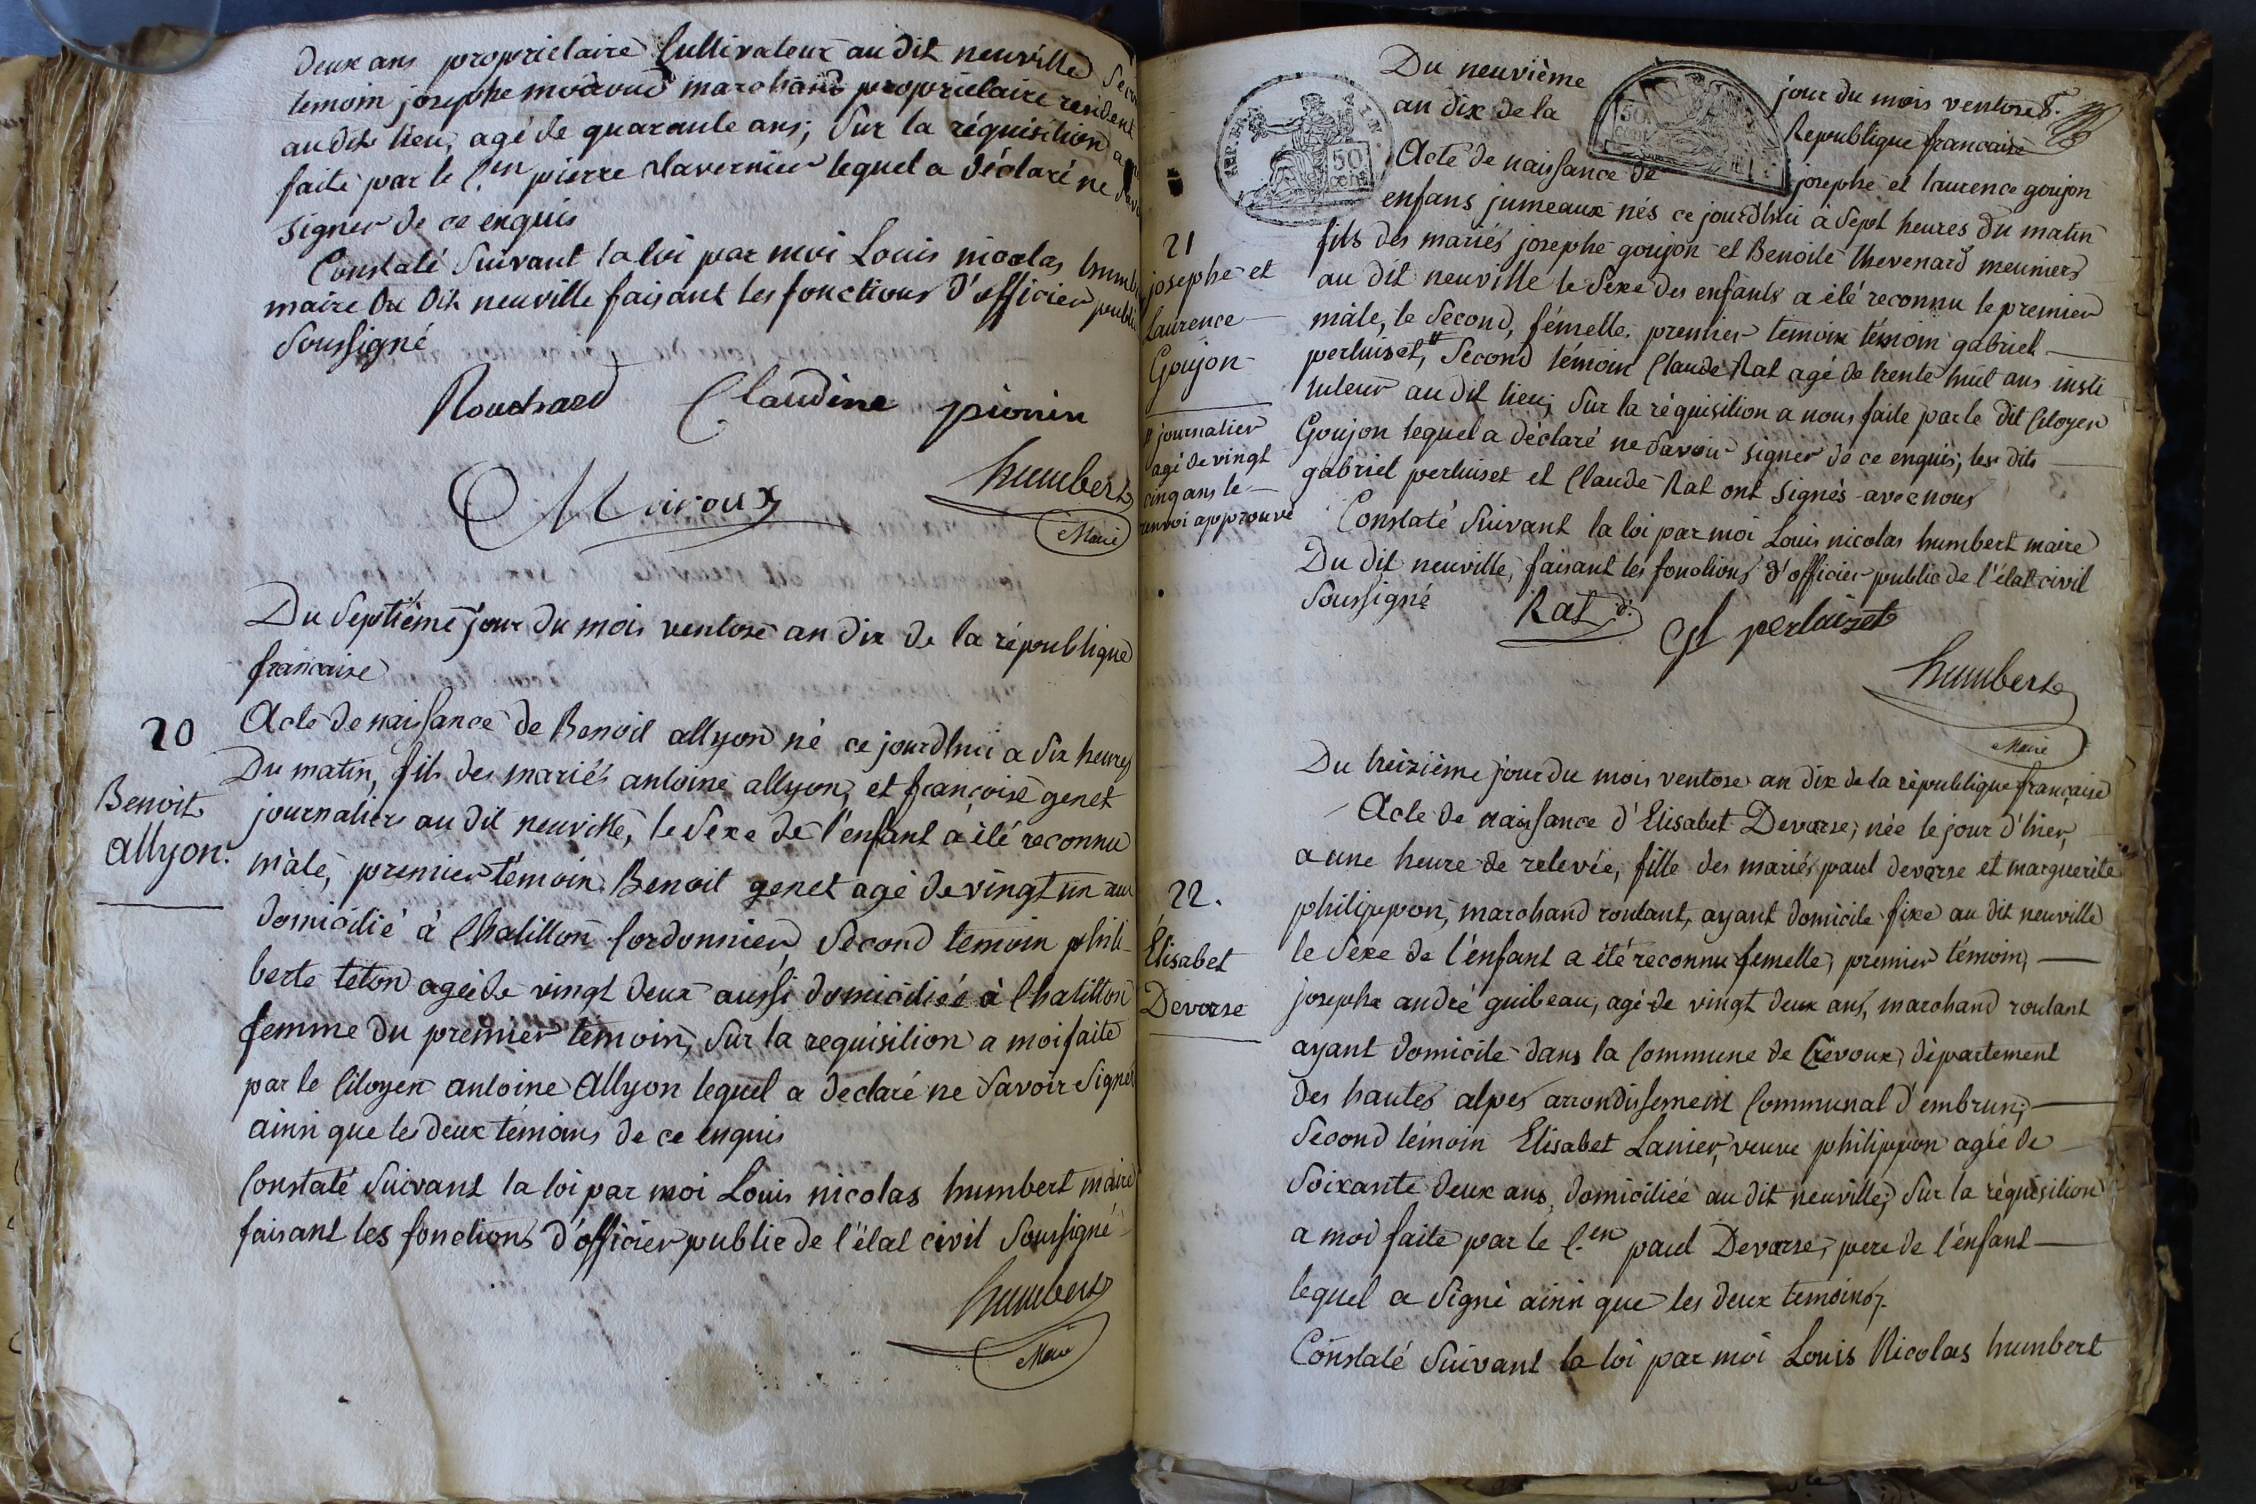 deux ans proprietaire Cultivateur au dit neuville
temoin josephe moiroud marchand proprietaire rendent
au dit lieu, agé de quarante ans; Sur la réquisition a
faite par le C.en pierre tavernier lequel a déclaré ne
signer de ce enquis
Constaté Suivant la loi par moi Louis nicolas humb
maire Du Dit neuville faisant les fonctions D'officier publi
Soussigné
Claudine pionin
Moiroux
humbert
Maire
Du Septième jour Du mois ventose an dix de la république
francaise
20
Acte de naissance de Benoit allyon né ce jourdhui a six heures
Du matin, fils des mariés antoine allyon, et françoise genet
Benoit
allyon.
journaliers au dit neuville, le Sexe de l'enfant a été reconnu
mâle, premier témoin Benoit genet agé de vingt un ans
domicilié à Chatillon Cordonnier, Second temoin phili-
berte teton agée de vingt deux aussi domiciliée à Chatillon
femme du premier temoin, Sur la requisition a moi faite
par le Citoyen antoine Allyon lequel a declaré ne Savoir Signer
ainsi que les deux témoins de ce enquis
Constaté Suivant la loi par moi Louis nicolas humbert maire
faisant les fonctions d'officier public de l'état civil Soussigné
humbert
Maire
Du neuvième jour du mois ventose
an dix de la Republique francaise
REP. FRA.
TIN
50
cent
50
cent
Acte de naissance de josephe et laurence goujon
enfans jumeaux nés ce jourdhui a Sept heures Du matin
21
josephe et
laurence
Goujon
fils des mariés josephe goujon et Benoite thevenard meuniers
au dit neuville le Sexe des enfants a été reconnu le premier
mâle, le Second, fémelle. premier temoin témoin gabriel
perluiset, # Second témoin Claude Rat agé de trente huit ans insti
tuteur au dit lieu, Sur la réquisition a nous faite par le dit Citoyen
# journalier
agé de vingt
cinq ans le
renvoi approuvé
Goujon lequel a déclaré ne Savoir Signer de ce enquis, les dits
gabriel perluiset et Claude Rat ont signés avec nous
Constaté Suivant la loi par moi Louis nicolas humbert maire
Du dit neuville, faisant les fonctions d'officier public de l'état civil
Soussigné
Rat
perluiset
humbert
Maire
Du treizième jour du mois ventose an dix de la république française
Acte de naissance d'Elisabet Devarse, née le jour d'hier,
a une heure de relevée, fille des mariés paul devarse et marguerite
22.
Élisabet
Devarse
philippon, marchand roulant, ayant domicile fixe au dit neuville
le Sexe de l'enfant a été reconnu femelle, premier témoin,
josephe andré guibeau, agé de vingt deux ans, marchand roulant
ayant domicile dans la Commune de Crévoux, département
des hautes alpes arrondissement Communal d'embrun;
Second témoin Elisabet Lanier, veuve philippon agée de
Soixante deux ans, domiciliée au dit neuville, Sur la réquisition
a moi faite par le C.en paul Devarse, pere de l'enfant
lequel a Signé ainsi que les deux temoins.
Constaté Suivant la loi par moi Louis Nicolas humbert